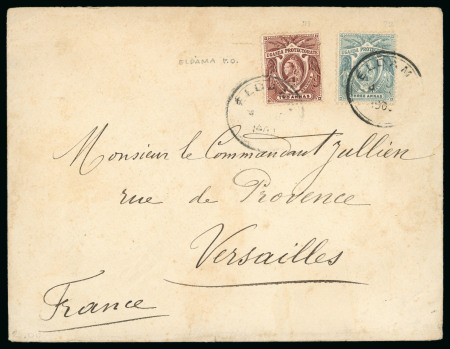 ELDAMA P.O.
UGANDA PROTECTORATE
TWO ANNAS
UGANDA PROTECTORATE
THREE ANNAS
ELDAM
Monsieur le Commandant Jullien
rue de Provence
Versailles
France